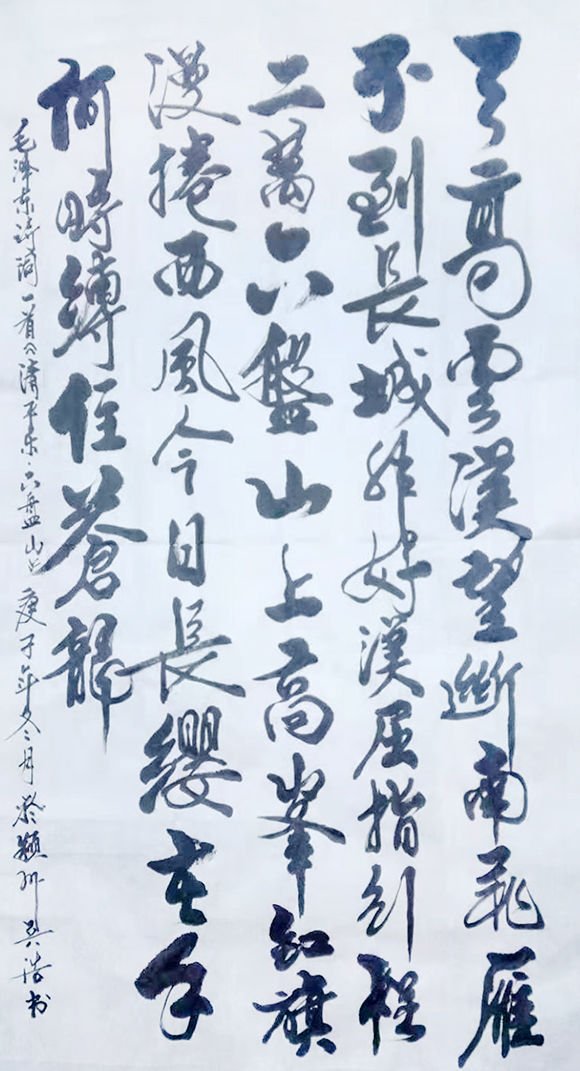 天高雲漢望斷南飛雁
不到長城非好漢屈指行程
二萬六盤山上高峯紅旗
漫捲西風今日長纓在手
何時縛住蒼龍
毛泽东诗词一首《清平乐·六盘山》庚子年冬月於颖州吴浩书